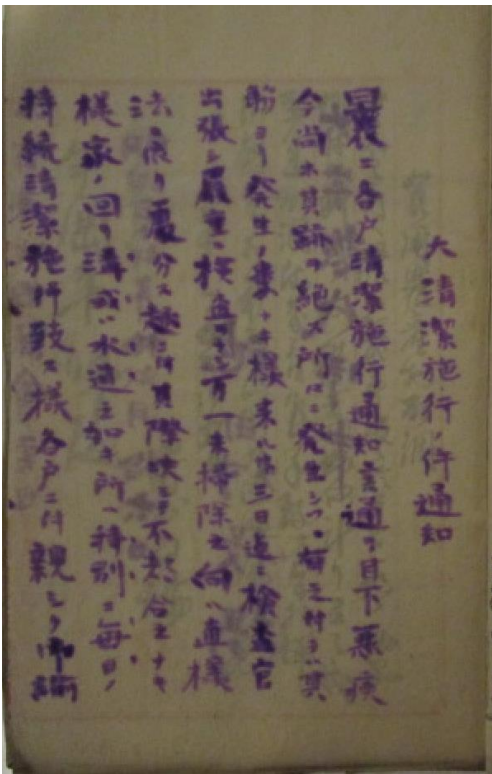 大清潔施行ノ件通知
曩ニ各戸清潔施行通知言通リ目下悪疫
今尚ホ其跡ヲ絶ズ所々ニ発生シツヽ有之付テハ其
筋ヨリ発生ノ様来ル廿三日迄ニ検査官
出張シ厳重ニ検査ヲナシ万一未掃除之向ハ直様
法ニ依リ処分ス趣ニ付其際映シテ不都合之ナキ
様家ノ回リ溝或ハ水道之如キ所ハ特別ニ毎日ノ
持続清潔施行致ス様各戸ニ付親シク御